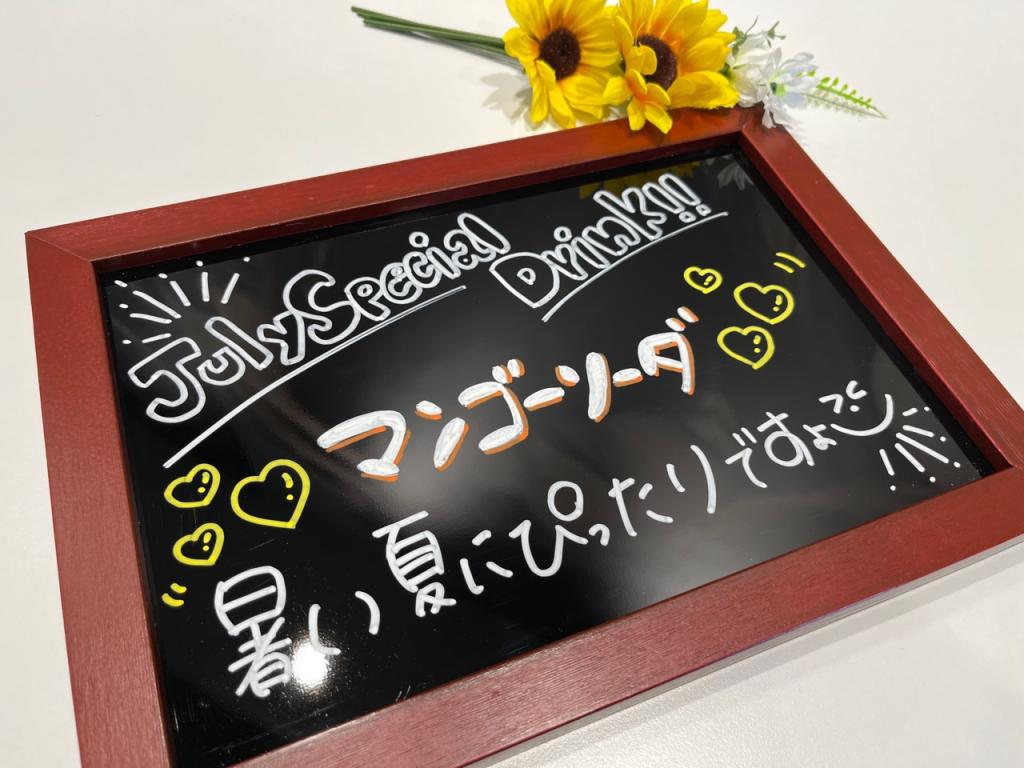 July Special Drink!!!
マンゴーソーダ
暑い夏にぴったりですよ